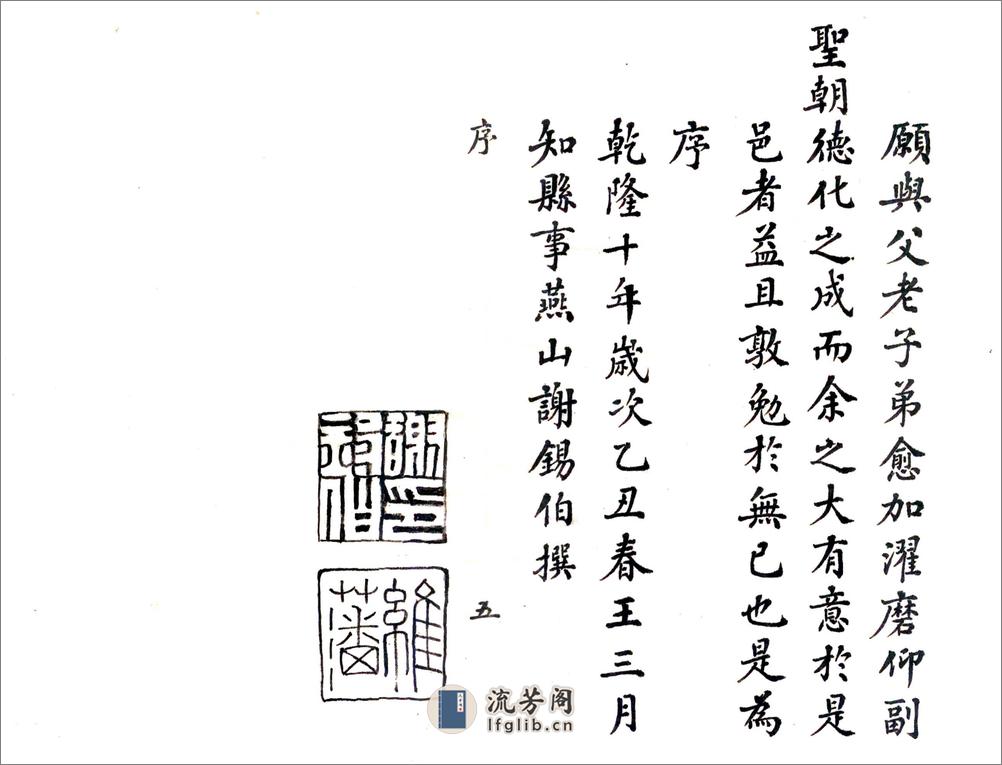 願與父老子弟愈加濯磨仰副
聖朝德化之成而余之大有意於是
邑者益且敦勉於無已也是為
序
乾隆十年歲次乙丑春王三月
知縣事燕山謝錫伯撰
序 五
維藩
流芳阁
lfglib.cn